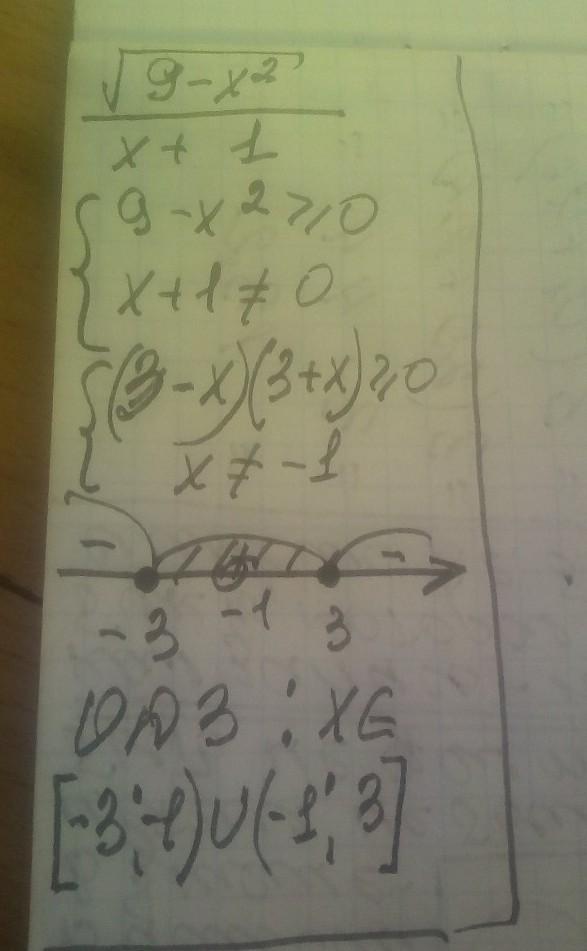 √(9-x²)
x + 1
{ 9-x² ⩾ 0
x+1 ≠ 0
{ (3-x)(3+x) ⩾ 0
x ≠ -1
- + -
-3 -1 3
ОДЗ : x∈
[-3;-1)∪(-1;3]